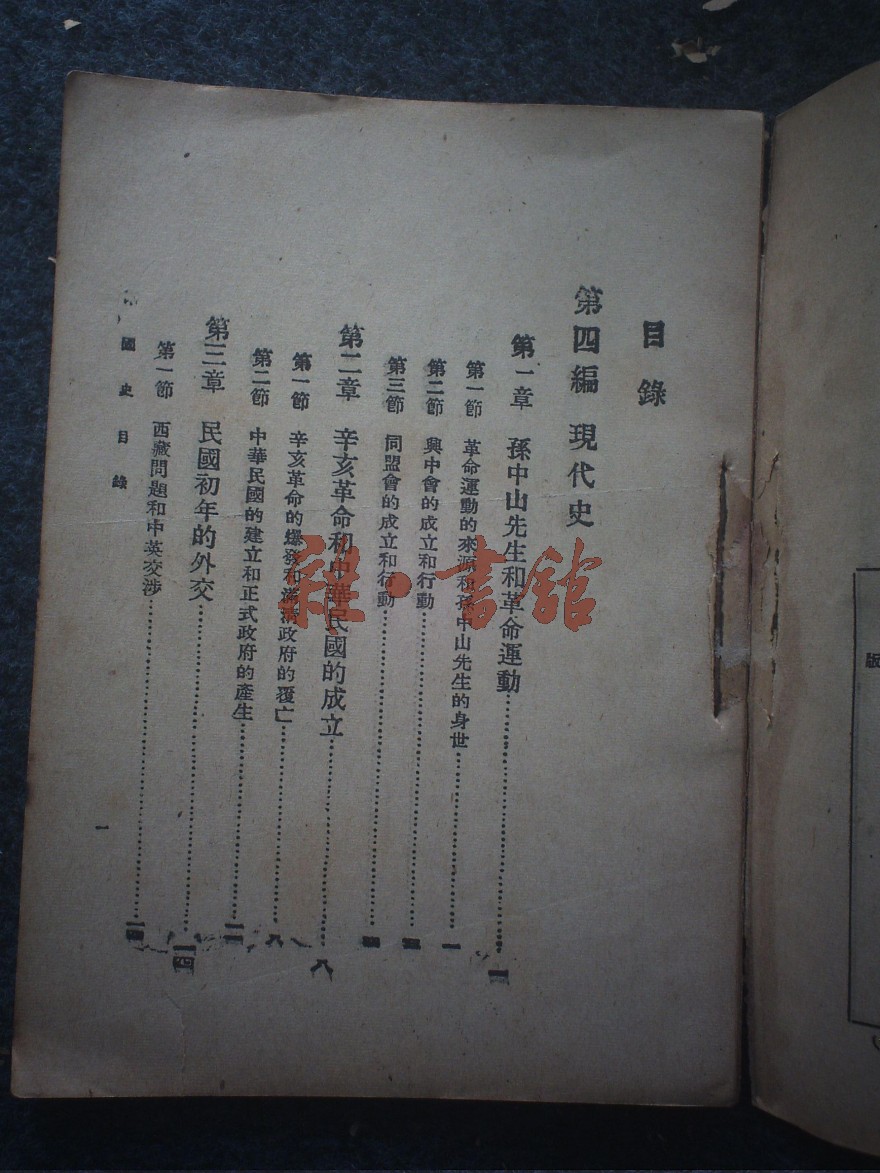 目錄
第四編 現代史
第一章 孫中山先生和革命運動……一
第一節 革命運動的來源和孫中山先生的身世……一
第二節 興中會的成立和行動……四
第三節 同盟會的成立和行動……四
第二章 辛亥革命和中華民國的成立……八
第一節 辛亥革命的爆發和滿清政府的覆亡……八
第二節 中華民國的建立和正式政府的產生……
第三章 民國初年的外交……一四
第一節 西藏問題和中英交涉……一四
國史 目錄
一
版
雜·書館